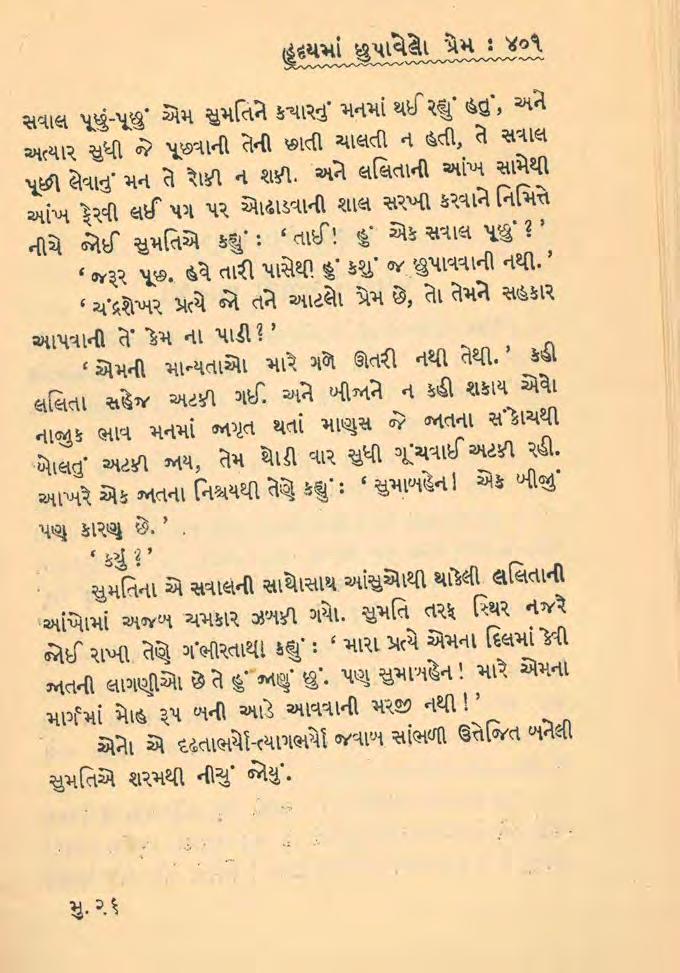 હૃદયમાં છુપાવેલો પ્રેમ : ૪૦૧
સવાલ પૂછું-પૂછું એમ સુમતિને ક્યારનું મનમાં થઈ રહ્યું હતું, અને
અત્યાર સુધી જે પૂછવાની તેની છાતી ચાલતી ન હતી, તે સવાલ
પૂછી લેવાનું મન તે રોકી ન શકી. અને લલિતાની આંખ સામેથી
આંખ ફેરવી લઈ પગ પર ઓઢાડવાની શાલ સરખી કરવાને નિમિત્તે
નીચે જોઈ સુમતિએ કહ્યું : ‘ તાઈ! હું એક સવાલ પૂછું ? ’
‘ જરૂર પૂછ. હવે તારી પાસેથી હું કશું જ છુપાવવાની નથી. ’
‘ ચંદ્રશેખર પ્રત્યે જો તને આટલો પ્રેમ છે, તો તેમને સહકાર
આપવાની તેં કેમ ના પાડી ? ’
‘ એમની માન્યતાઓ મારે ગળે ઊતરી નથી તેથી. ’ કહી
લલિતા સહેજ અટકી ગઈ. અને બીજાને ન કહી શકાય એવો
નાજુક ભાવ મનમાં જાગૃત થતાં માણુસ જે જાતના સંકોચથી
બોલતું અટકી જાય, તેમ થોડી વાર સુધી ગૂંચવાઈ અટકી રહી.
આખરે એક જાતના નિશ્ચયથી તેણે કહ્યું : ‘ સુમાબહેન! એક બીજું
પણ કારણ છે. ’
‘ કયું ? ’
સુમતિના એ સવાલની સાથોસાથ આંસુઓથી થાકેલી લલિતાની
આંખોમાં અજબ ચમકાર ઝબકી ગયો. સુમતિ તરફ સ્થિર નજરે
જોઈ રાખી તેણે ગંભીરતાથી કહ્યું : ‘ મારા પ્રત્યે એમના દિલમાં કેવી
જાતની લાગણીઓ છે તે હું જાણું છું. પણ સુમાબહેન! મારે એમના
માર્ગમાં મોહ રૂપ બની આડે આવવાની મરજી નથી! ’
એનો એ દૃઢતાભર્યો-ત્યાગભર્યો જવાબ સાંભળી ઉત્તેજિત બનેલી
સુમતિએ શરમથી નીચું જોયું.
મુ. ૨૬